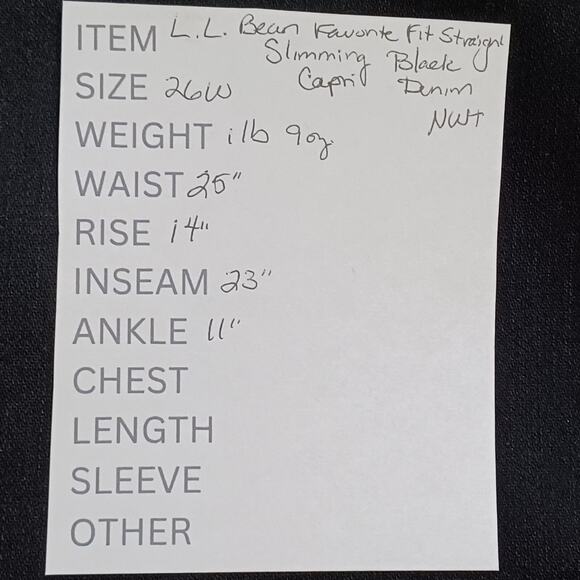 ITEM L.L. Bean Favorite Fit Straight
Slimming Black
SIZE 26W Capri Denim
NWT
WEIGHT 1lb 9oz
WAIST 25"
RISE 14"
INSEAM 23"
ANKLE 11"
CHEST
LENGTH
SLEEVE
OTHER